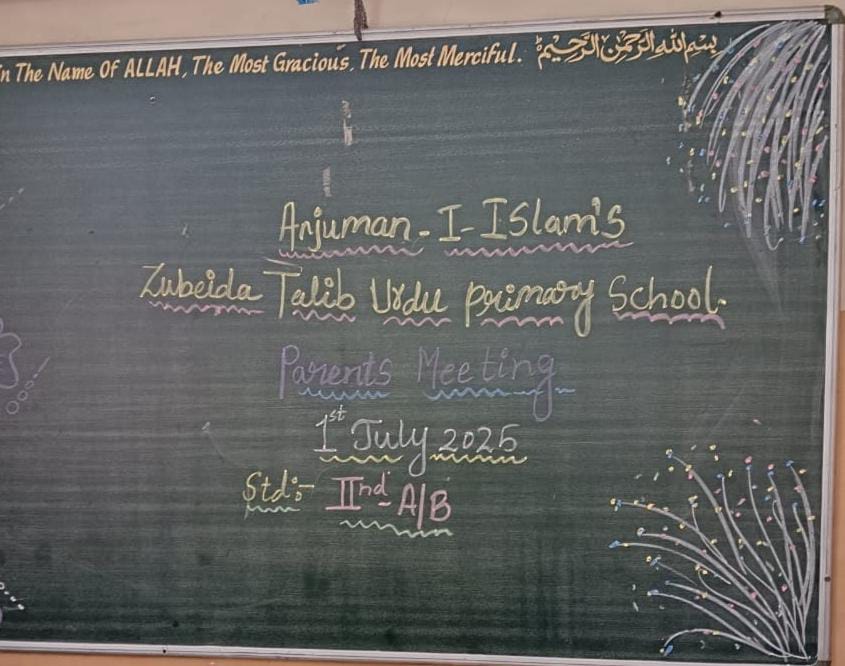 In The Name Of ALLAH, The Most Gracious, The Most Merciful. بسم الله الرحمن الرحيم
Anjuman-I-ISlam's
Zubeida Talib Urdu primary School.
Parents Meeting
1st July 2025
Std:- IInd A/B